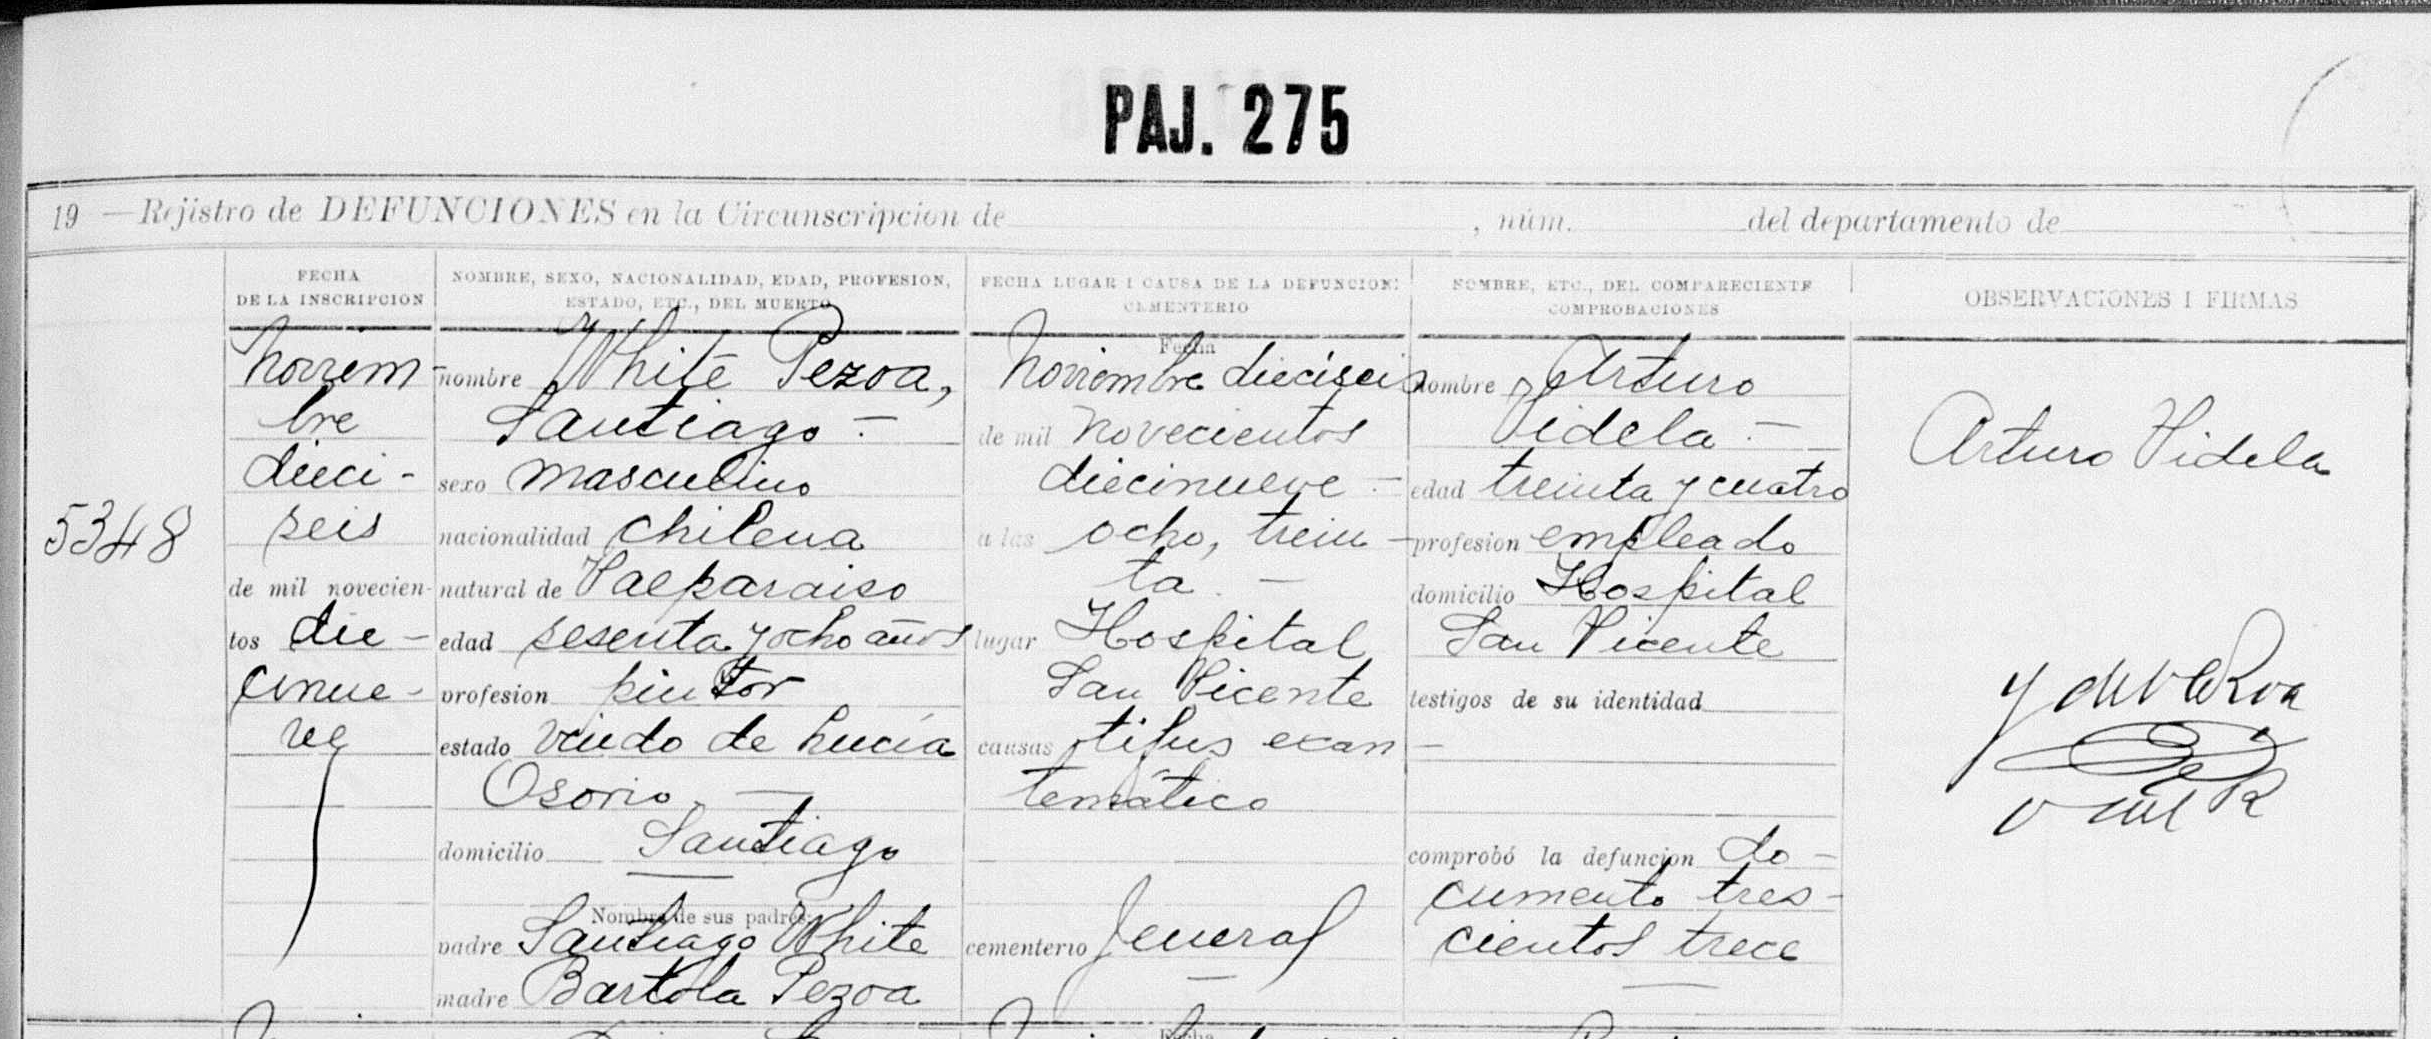 PAJ. 275
19 — Rejistro de DEFUNCIONES en la Circunscripcion de , núm. del departamento de
FECHA
DE LA INSCRIPCION
NOMBRE, SEXO, NACIONALIDAD, EDAD, PROFESION,
ESTADO, ETC., DEL MUERTO
FECHA LUGAR I CAUSA DE LA DEFUNCION:
CEMENTERIO
NOMBRE, ETC., DEL COMPARECIENTE
COMPROBACIONES
OBSERVACIONES I FIRMAS
5348
Noviem-
bre
dieci-
seis
de mil novecien-
tos die-
cinue-
ve
nombre White Pezoa,
Santiago. —
sexo masculino
nacionalidad chilena
natural de Valparaiso
edad sesenta y ocho años
profesion pintor
estado viudo de Lucía
Osorio. —
domicilio Santiago
Nombre de sus padres
padre Santiago White
madre Bartola Pezoa
Fecha
Noviembre dieciseis
de mil novecientos
diecinueve. —
a las ocho, trein-
ta. —
lugar Hospital
San Vicente
causas tifus exan-
temático
cementerio Jeneral
nombre Arturo
Videla. —
edad treinta y cuatro
profesion empleado
domicilio Hospital
San Vicente
testigos de su identidad
comprobó la defuncion do-
cumento tres-
cientos trece
Arturo Videla
Fecha